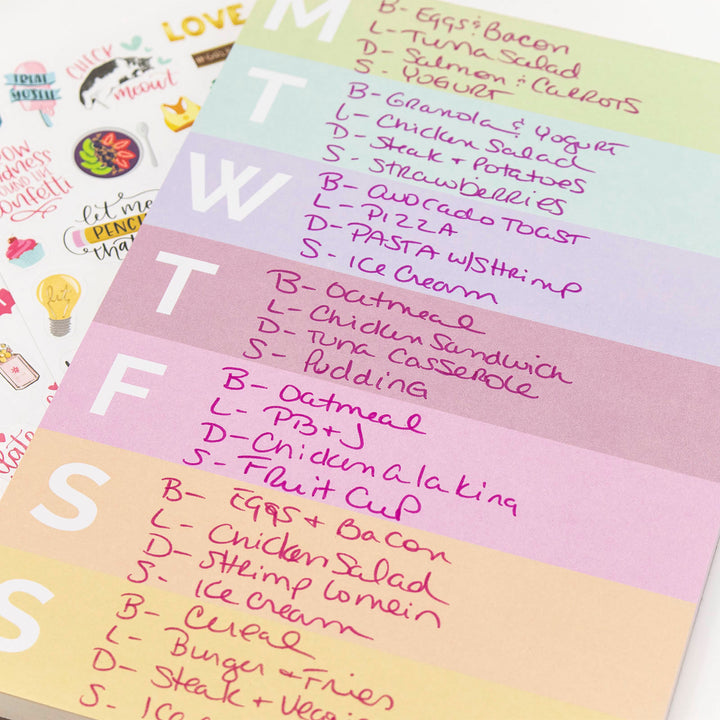 M
B- Eggs & Bacon
L- Tuna Salad
D- Salmon & Carrots
S- Yogurt
T
B- Granola & Yogurt
L- Chicken Salad
D- Steak + Potatoes
S- Strawberries
W
B- Avocado Toast
L- Pizza
D- Pasta w/Shrimp
S- Ice Cream
T
B- Oatmeal
L- Chicken Sandwich
D- Tuna Casserole
S- Pudding
F
B- Oatmeal
L- PB+J
D- Chicken a la king
S- Fruit Cup
S
B- Eggs + Bacon
L- Chicken Salad
D- Shrimp Lomein
S- Ice Cream
S
B- Cereal
L- Burger + Fries
D- Steak +
S- Ice
LOVE
CHECK
meowt
TREAT
YOSELF
confetti
let me
PENCIL
that